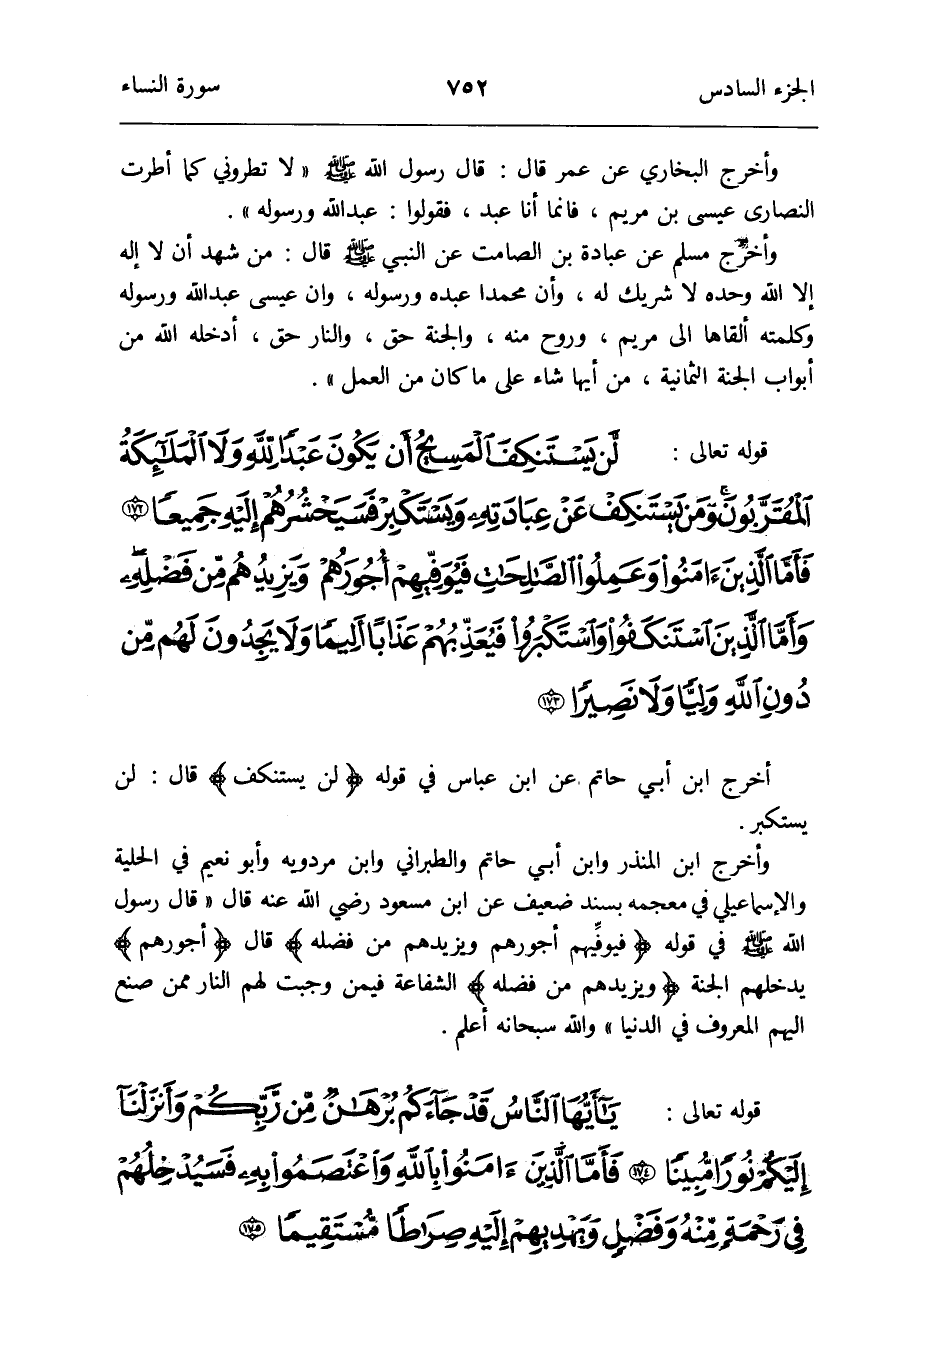 الجزء السادس ٧٥٢ سورة النساء
وأخرج البخاري عن عمر قال : قال رسول الله ﷺ « لا تطروني كما أطرت
النصارى عيسى بن مريم ، فانما أنا عبد ، فقولوا : عبدالله ورسوله » .
وأخرج مسلم عن عبادة بن الصامت عن النبي ﷺ قال : من شهد أن لا إله
إلا الله وحده لا شريك له ، وأن محمدا عبده ورسوله ، وان عيسى عبدالله ورسوله
وكلمته ألقاها الى مريم ، وروح منه ، والجنة حق ، والنار حق ، أدخله الله من
أبواب الجنة الثمانية ، من أيها شاء على ما كان من العمل » .
قوله تعالى : لَّن يَسْتَنكِفَ ٱلْمَسِيحُ أَن يَكُونَ عَبْدًا لِّلَّهِ وَلَا ٱلْمَلَٰٓئِكَةُ
ٱلْمُقَرَّبُونَ ۚ وَمَن يَسْتَنكِفْ عَنْ عِبَادَتِهِۦ وَيَسْتَكْبِرْ فَسَيَحْشُرُهُمْ إِلَيْهِ جَمِيعًا ﴿١٧٢﴾
فَأَمَّا ٱلَّذِينَ ءَامَنُوا۟ وَعَمِلُوا۟ ٱلصَّٰلِحَٰتِ فَيُوَفِّيهِمْ أُجُورَهُمْ وَيَزِيدُهُم مِّن فَضْلِهِۦ ۖ
وَأَمَّا ٱلَّذِينَ ٱسْتَنكَفُوا۟ وَٱسْتَكْبَرُوا۟ فَيُعَذِّبُهُمْ عَذَابًا أَلِيمًا وَلَا يَجِدُونَ لَهُم مِّن
دُونِ ٱللَّهِ وَلِيًّا وَلَا نَصِيرًا ﴿١٧٣﴾
أخرج ابن أبي حاتم عن ابن عباس في قوله ﴿ لن يستنكف ﴾ قال : لن
يستكبر .
وأخرج ابن المنذر وابن أبي حاتم والطبراني وابن مردويه وأبو نعيم في الحلية
والإسماعيلي في معجمه بسند ضعيف عن ابن مسعود رضي الله عنه قال « قال رسول
الله ﷺ في قوله ﴿ فيوفِّيهم أجورهم ويزيدهم من فضله ﴾ قال ﴿ أجورهم ﴾
يدخلهم الجنة ﴿ ويزيدهم من فضله ﴾ الشفاعة فيمن وجبت لهم النار ممن صنع
اليهم المعروف في الدنيا » والله سبحانه أعلم .
قوله تعالى : يَٰٓأَيُّهَا ٱلنَّاسُ قَدْ جَآءَكُم بُرْهَٰنٌ مِّن رَّبِّكُمْ وَأَنزَلْنَآ
إِلَيْكُمْ نُورًا مُّبِينًا ﴿١٧٤﴾ فَأَمَّا ٱلَّذِينَ ءَامَنُوا۟ بِٱللَّهِ وَٱعْتَصَمُوا۟ بِهِۦ فَسَيُدْخِلُهُمْ
فِى رَحْمَةٍ مِّنْهُ وَفَضْلٍ وَيَهْدِيهِمْ إِلَيْهِ صِرَٰطًا مُّسْتَقِيمًا ﴿١٧٥﴾